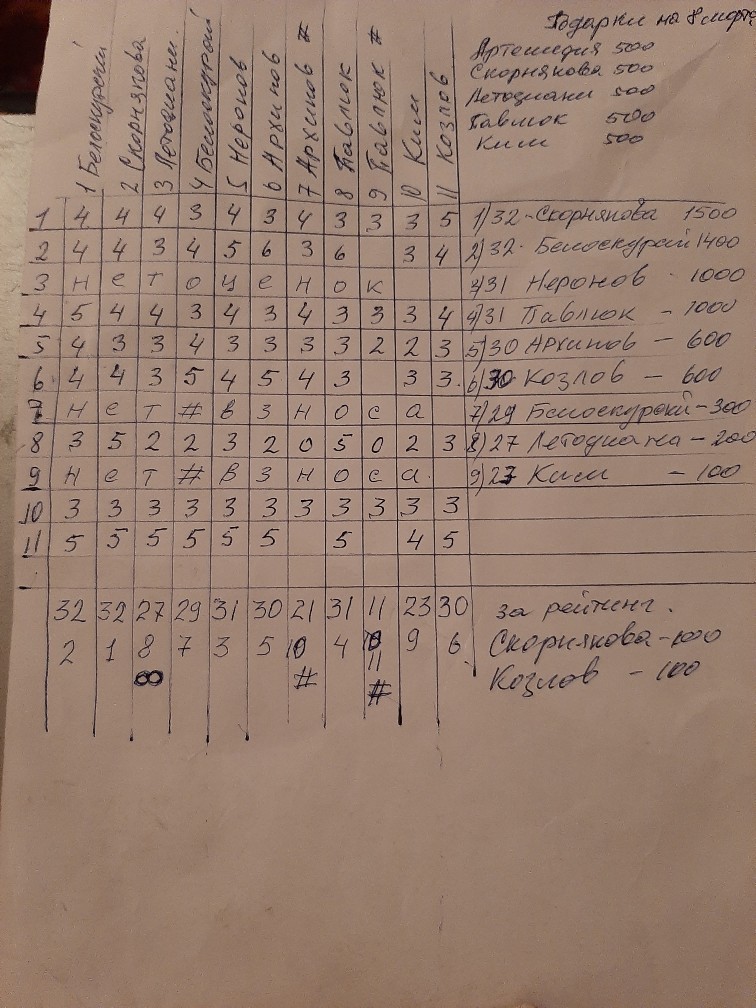 Подарки на 8 марта
Артемедия 500
Скорнякова 500
Летодиани 500
Павлюк 500
Ким 500
1 Белоскурский
2 Скорнякова
3 Летодиани.
4 Белоскурой
5 Неронов
6 Архипов
7 Архипов #
8 Павлюк
9 Павлюк #
10 Ким
11 Козлов
1 4 4 4 3 4 3 4 3 3 3 5 1)32-Скорнякова 1500
2 4 4 3 4 5 6 3 6 3 4 2)32-Белоскурой 1400
3 н е т о ц е н о к 3)31 Неронов - 1000
4 5 4 4 3 4 3 4 3 3 3 4 4)31 Павлюк - 1000
5 4 3 3 4 3 3 3 3 2 2 3 5)30 Архипов - 600
6 4 4 3 5 4 5 4 3 3 3. 6)30 Козлов - 600
7 н е т # в з н о с а 7)29 Белоскурой - 300
8 3 5 2 2 3 2 0 5 0 2 3 8)27 Летодиана - 200
9 н е т # в з н о с а. 9)23 Ким - 100
10 3 3 3 3 3 3 3 3 3 3 3
11 5 5 5 5 5 5 5 4 5
32 32 27 29 31 30 21 31 11 23 30 за рейтинг.
2 1 8 7 3 5 10 4 11 9 6 Скорнякова-1000
8 # # Козлов - 100